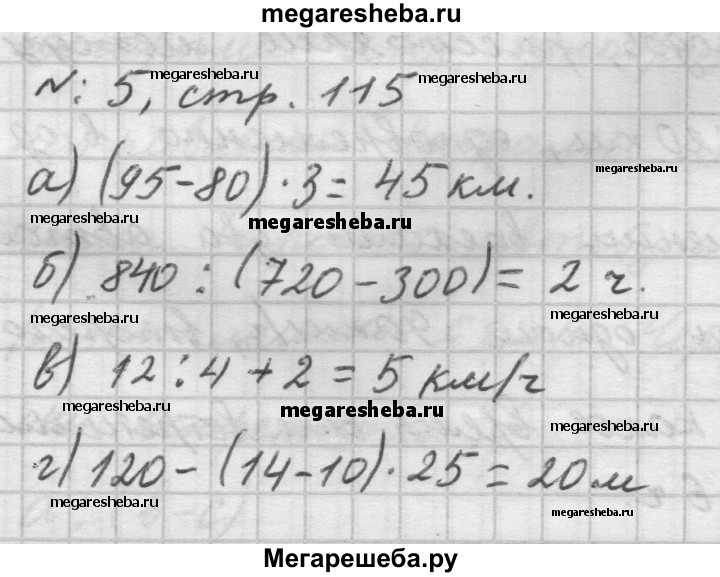 megaresheba.ru
№: 5, стр. 115
megaresheba.ru megaresheba.ru
а) (95-80)·3= 45 км.
megaresheba.ru
megaresheba.ru megaresheba.ru
б) 840 : (720-300)= 2 ч.
megaresheba.ru megaresheba.ru
в) 12:4+2=5 км/ч
megaresheba.ru megaresheba.ru
megaresheba.ru
г) 120-(14-10)·25=20 м
megaresheba.ru megaresheba.ru
Мегарешеба.ру